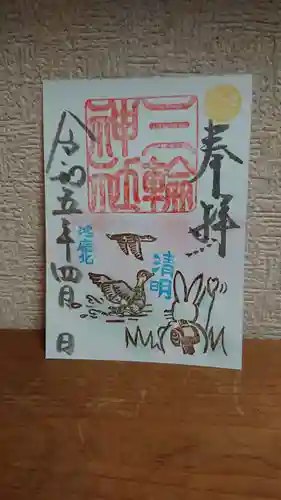 奉拝
三輪
神社
清明
令和五年四月 日